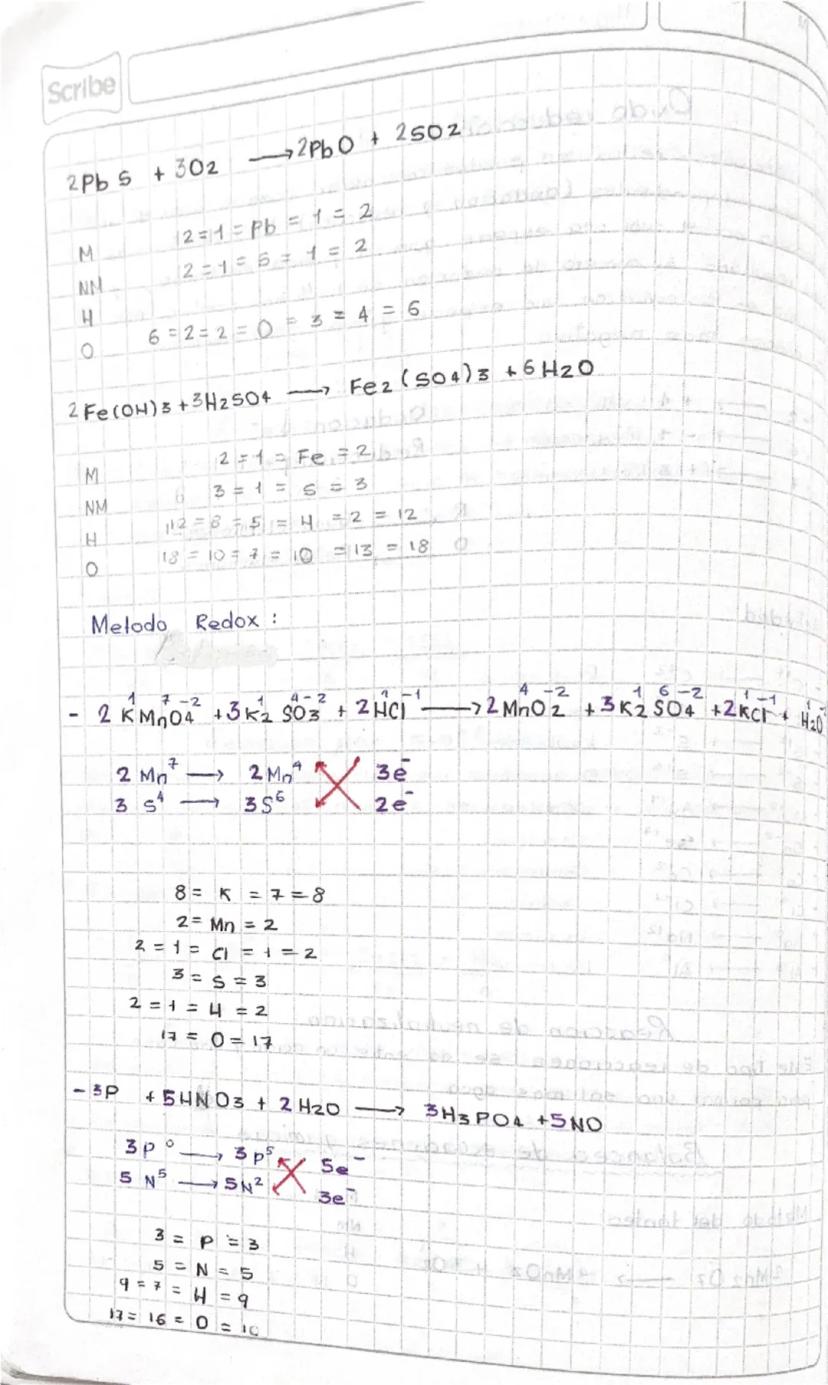 Scribe
2Pb S + 3O2 → 2PbO + 2SO2
M 12=1=Pb=1=2
NM 2=1=S=1=2
H
O 6=2=2=O=3=4=6
2Fe(OH)3+3H2SO4 → Fe2(SO4)3 +6H2O
M 2=1=Fe=2
NM 3=1=S=3
H 12=8=5=H=2=12
O 18=10=7=10=13=18
Metodo Redox:
- 2 K1 Mn7 O4-2 +3K21 S4 O3-2 + 2H1Cl-1 → 2Mn4O2-2 + 3K21 S6 O4-2 +2K1Cl-1 + H21O
2 Mn7 → 2Mn4 3e-
3 S4 → 3S6 2e-
8= K =7=8
2= Mn =2
2=1= Cl =1=2
3=S=3
2=1=H=2
17=O=17
- 3P +5HNO3 + 2H2O → 3H3PO4 +5NO
3P0 → 3P5 5e-
5 N5 → 5N2 3e-
3= P =3
5=N=5
9=7=H=9
17=16=O=